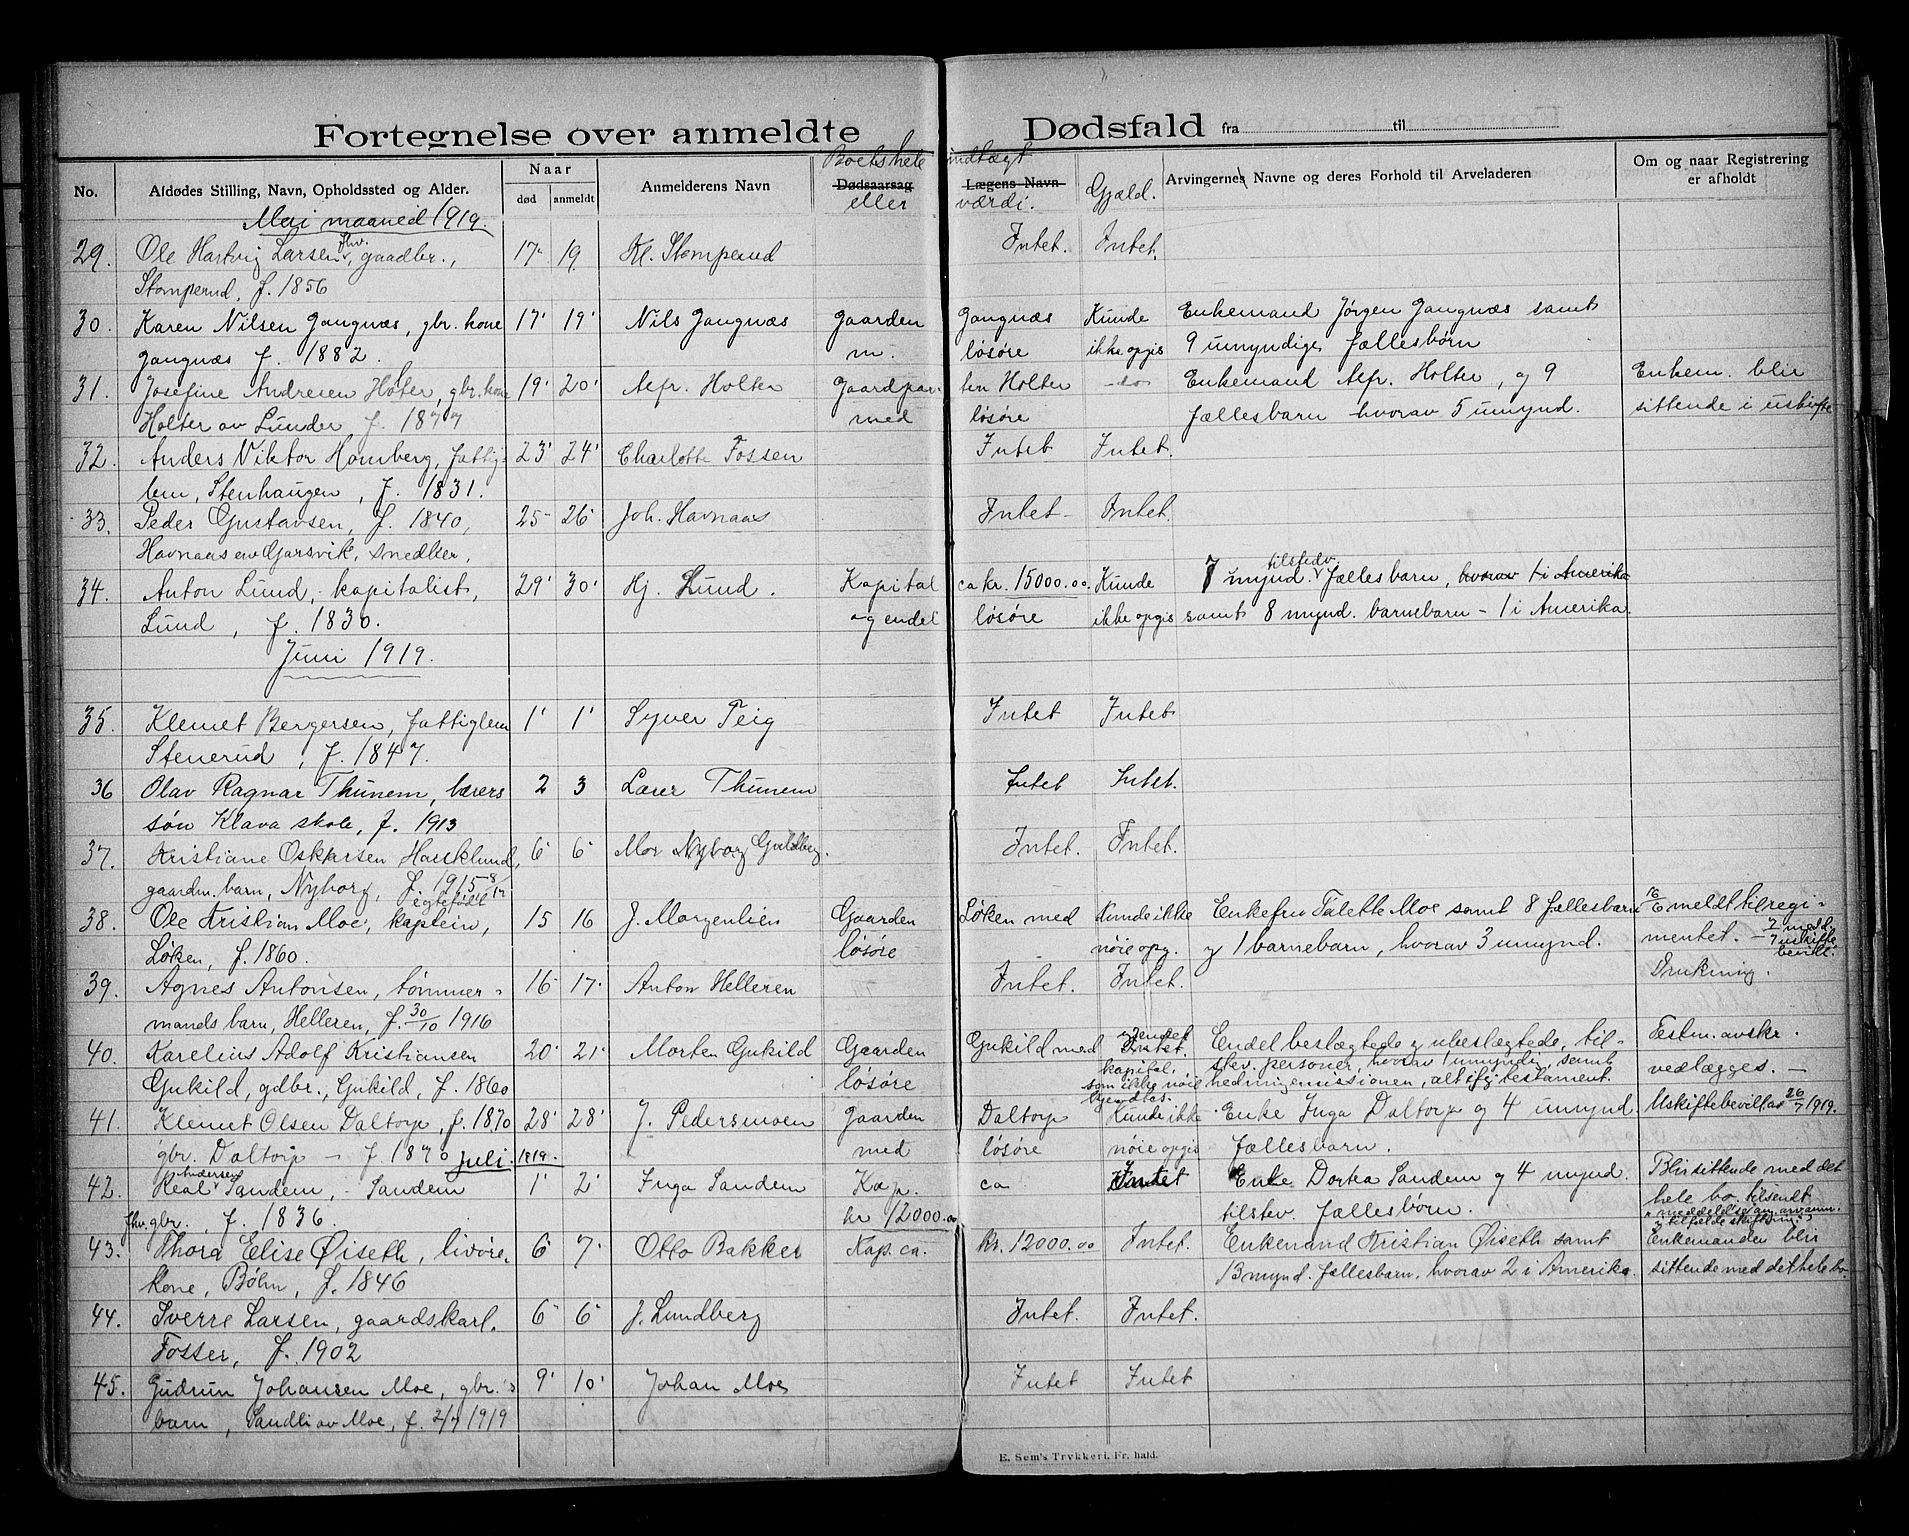 Fortegnelse over anmeldte Dødsfald fra til
No. Afdødes Stilling, Navn, Opholdssted og Alder. Naar død anmeldt Anmelderens Navn Dødsaarsag Boets hele eller Lægens Navn indtægt værdi. Gjæld. Arvingernes Navne og deres Forhold til Arveladeren Om og naar Registrering er afholdt
Mai maaned 1919.
29. Ole Hartvig Larsen, fhv. gaadbr., 17 19 Kl. Stomperud Intet. Intet.
Stomperud, f. 1856
30. Karen Nilsen Gangnæs, gbr. kone 17 19 Nils Gangnæs Gaarden Gangnæs Kunde Enkemand Jørgen Gangnæs samt
Gangnæs f. 1882. m. løsøre ikke opgis 9 umyndige fællesbørn
31. Josefine Andresen Holter, gbr. kone 19 20 Alfr. Holter Gaardpar- ten Holter do Enkemand Alfr. Holter, og 9 Enkem. blir
Holter av Lunder f. 1877 med løsøre fællesbarn hvorav 5 umynd. sittende i uskifte
32. Anders Viktor Homberg, fattig- 23 24 Charlotte Fossen Intet Intet.
lem, Stenhaugen, f. 1831.
33. Peder Gustavsen, f. 1840, 25 26 Joh. Havnaas Intet Intet.
Havnaas av Garsvik, snedker,
34. Anton Lund, kapitalist, 29 30 Kj. Lund. Kapital ca kr. 15000.00 Kunde 7 mynd. tilstedv. fællesbarn, hvorav 1 i Amerika
Lund, f. 1830. og endel løsøre ikke opgis samt 8 mynd. barnebarn - 1 i Amerika.
Juni 1919.
35. Klemet Bergersen, fattiglem 1 1 Syver Teig Intet Intet
Stenerud, f. 1847.
36 Olav Ragnar Thunem, lærers 2 3 Lærer Thunem Intet Intet.
søn Klava skole, f. 1913
37. Kristiane Oskarsen Hauklund, 6 6 Mor Nyborg Guldberg. Intet. Intet.
gaardm. barn, Nyborg, f. 1915 8/12
38. Ole Kristian Moe, kaptein, 15 16 J. Morgenlien Gaarden Løken med Kunde ikke Enkefru Talette Moe samt 8 fællesbarn 16/6 meldt til regi-
Løken, f. 1860. løsøre nøie opg. og 1 barnebarn, hvorav 3 umynd. mentet.
39. Agnes Antonsen, tømmer- 16 17 Anton Helleren Intet. Intet. Drukning.
mands barn, Helleren, f. 30/10 1916
40. Karelius Adolf Kristiansen 20 21 Morten Gukild Gaarden Gukild med Endel beslægtede og ubeslægtede, til- Testm. avskr.
Gukild, gdbr., Gukild, f. 1860 løsøre kapital, som ikke nøie stev. personer, hvorav 1 umyndig, samt hedningemissionen, alt ifg testament. vedlægges.
41. Klemet Olsen Daltorp, f. 1870 28 28 J. Pedersmoen Gaarden Daltorp Kunde ikke Enke Inga Daltorp og 4 umynd Uskiftebevilling 26/7 1919.
gbr. Daltorp - f. 1870 med løsøre nøie opgis fællesbarn.
Juli. 1919.
42. Real Andersen Sandem, - Sandem 1 2 Inga Sandem Kap. ca Intet Enke Dorka Sandem og 4 mynd. Blir sittende med det
fhv. gbr. f. 1836. kr 12000.00 tilstev. fællesbørn. hele bo. tilsendt
43. Thora Elise Øiseth, livøre- 6 7 Otto Bakker Kap. ca. kr. 12000.00 Intet. Enkemand Kristian Øiseth samt Enkemanden blir
kone, Bøhn, f. 1846 13 mynd. fællesbarn, hvorav 2 i Amerika. sittende med det hele bo
44. Sverre Larsen, gaardskarl. 6 6 J. Lundberg Intet. Intet.
Fosser, f. 1902
45. Gudrun Johansen Moe, gbr.'s 9 10 Johan Moe Intet Intet
barn, Sandli av Moe, f. 2/7 1919
E. Sem's Trykkeri, Fr. hald.